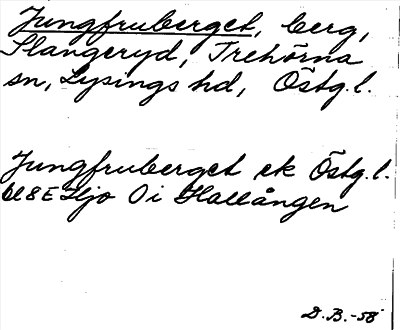 Jungfruberget, berg,
Slangeryd, Trehörna
sn, Lysings hd, Östg.l.
Jungfruberget ek Östg.l.
8E Hjo 0i Hallången
D.B.-58